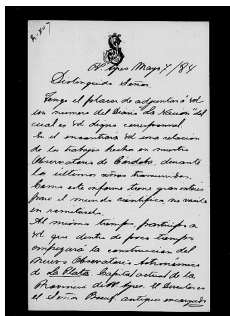 Bs Ayres Mayo 7/84
Distinguido Señor.
Tengo el placer de adjuntar á Vd
un numero del Diario "La Nacion" del
cual es Vd digno corresponsal.
En él encontrará Vd una relacion
de los trabajos hechos en nuestro
Observatorio de Córdoba, durante
los últimos años transcurridos.
Como este informe tiene gran interés
para el mundo científico no vacilo
en remitirselo.
Al mismo tiempo participo a
Vd que dentro de poco tiempo
empezará la construccion del
Nuevo Observatorio Astronómico
de La Plata, Capital actual de la
Provincia de Bs Ayres. El Director es
el Señor Beuf antiguo encargado